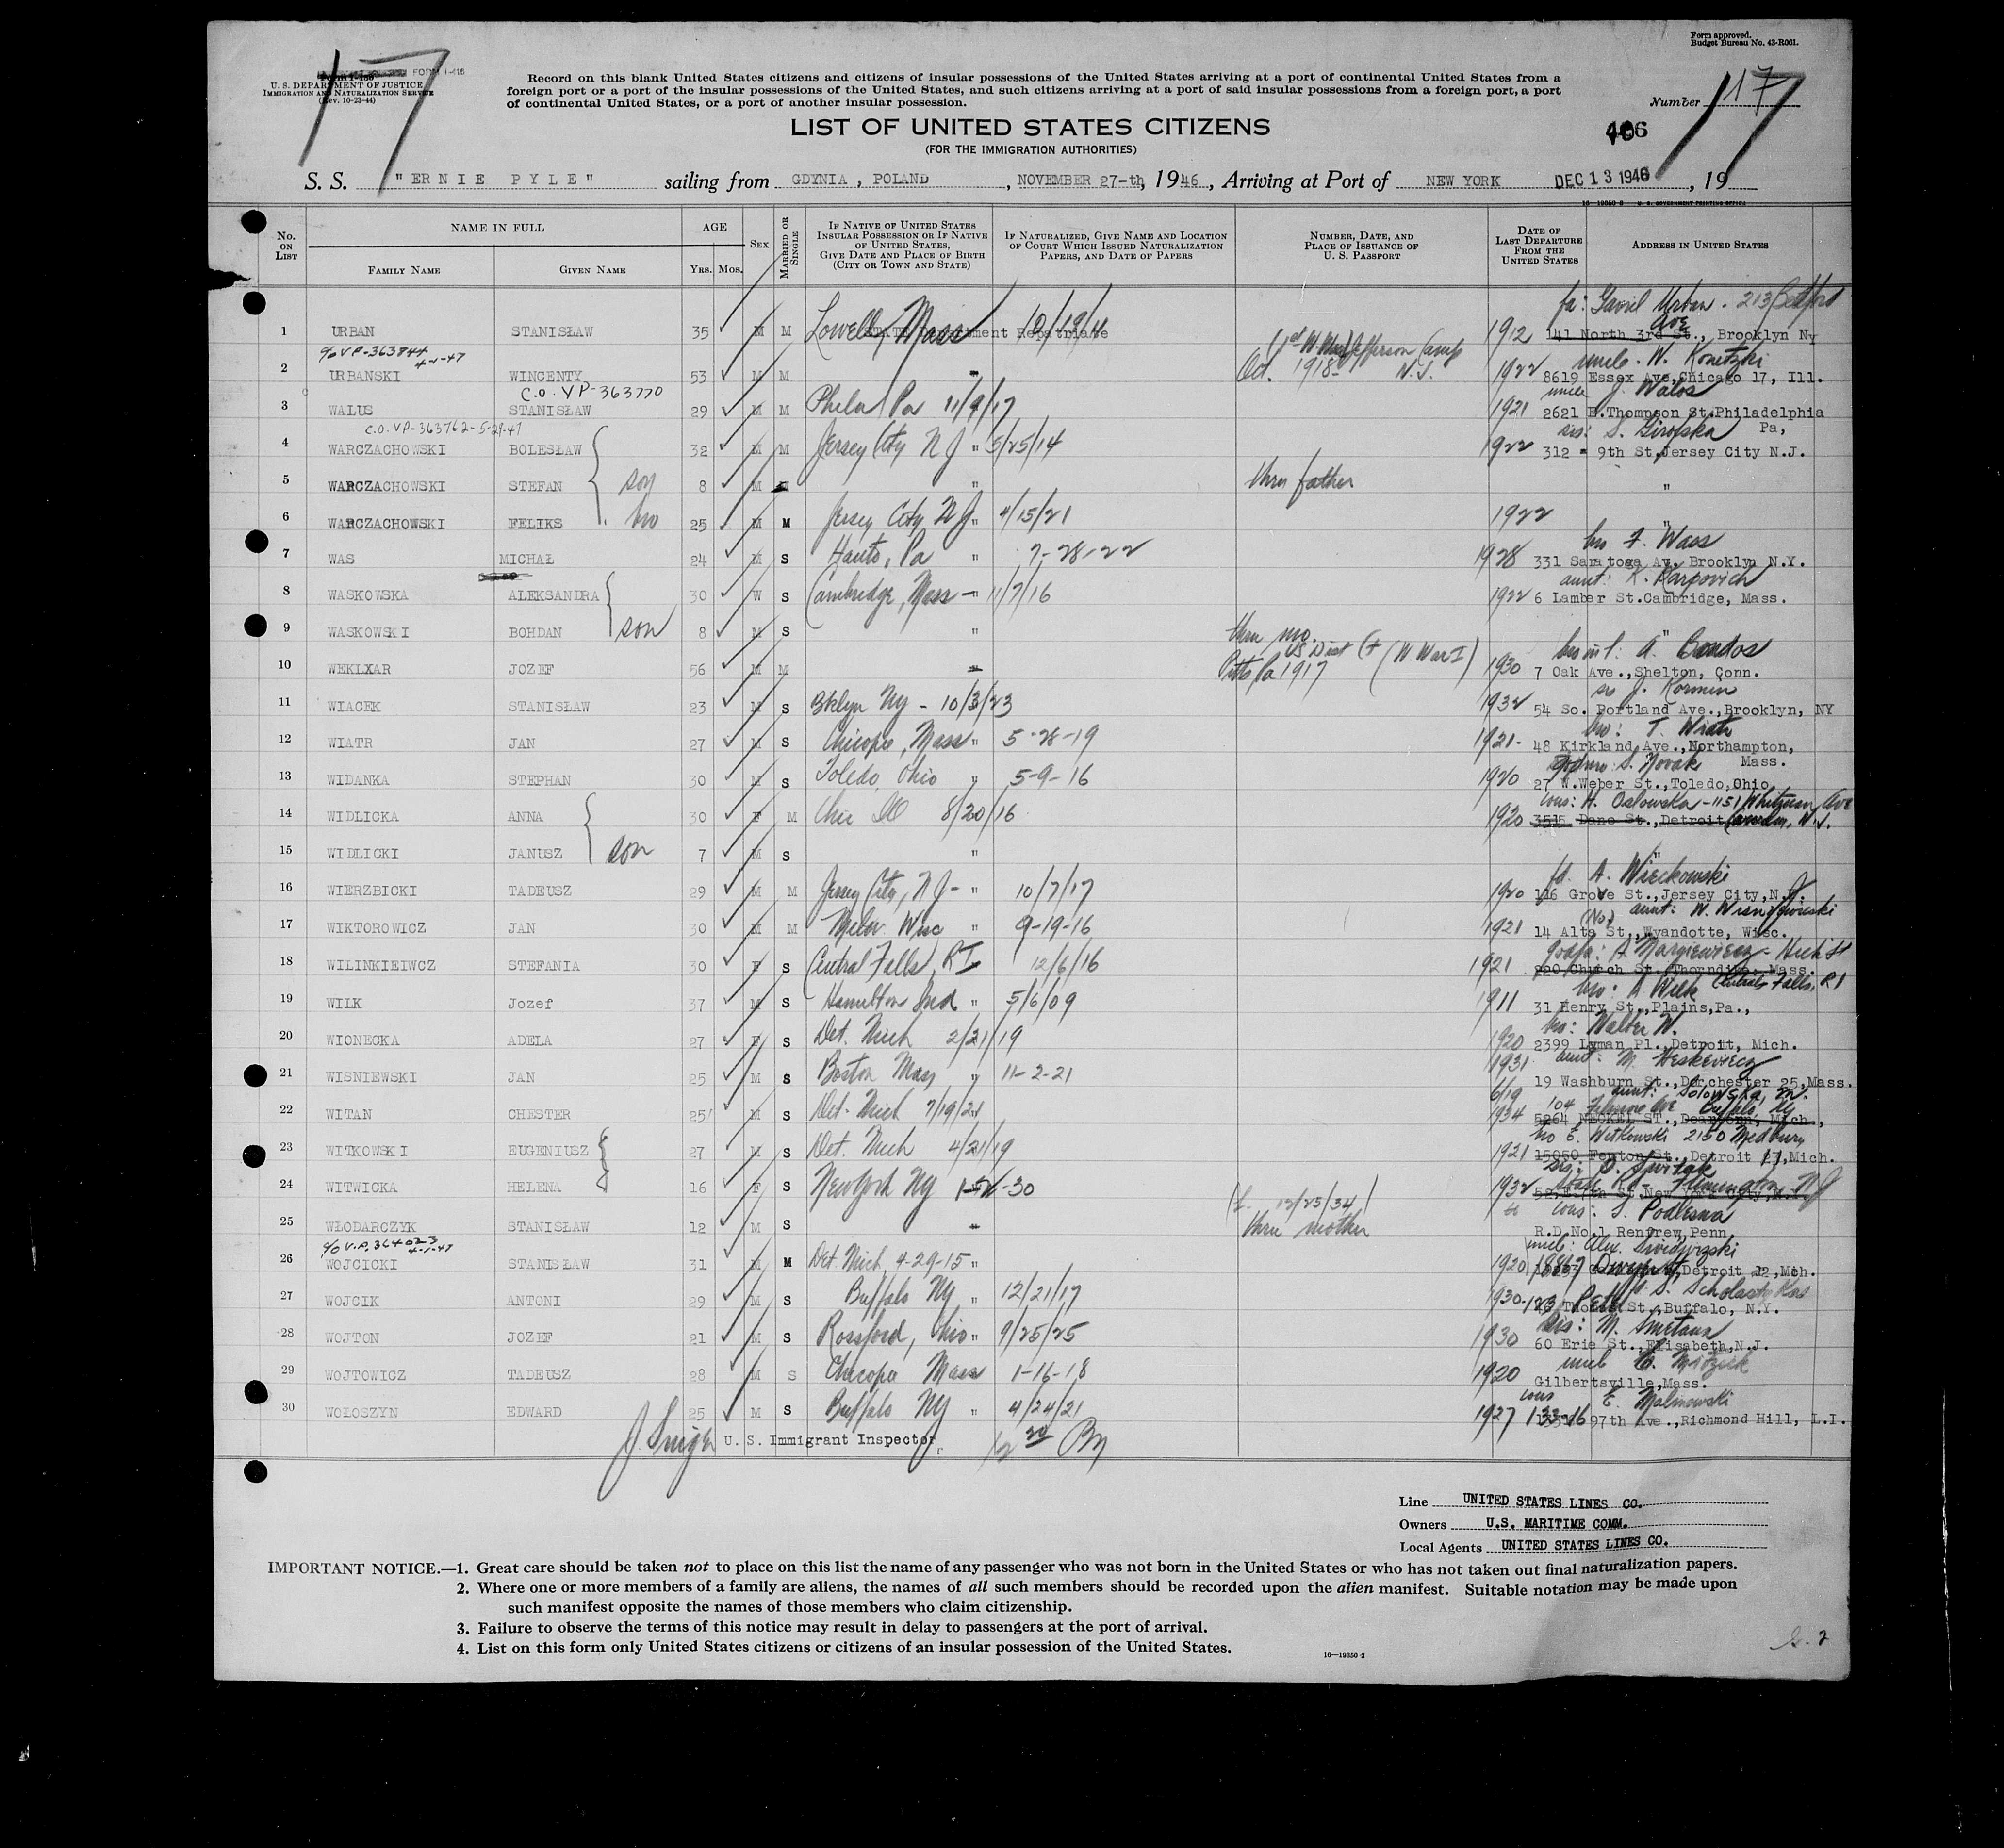 17
Form approved.
Budget Bureau No. 43-R061.
FORM I-416
U. S. DEPARTMENT OF JUSTICE
IMMIGRATION AND NATURALIZATION SERVICE
(Rev. 10-23-44)
Record on this blank United States citizens and citizens of insular possessions of the United States arriving at a port of continental United States from a
foreign port or a port of the insular possessions of the United States, and such citizens arriving at a port of said insular possessions from a foreign port, a port
of continental United States, or a port of another insular possession.
Number 17
17
LIST OF UNITED STATES CITIZENS
(FOR THE IMMIGRATION AUTHORITIES)
S. S. "ERNIE PYLE" sailing from GDYNIA, POLAND, NOVEMBER 27-th, 1946, Arriving at Port of NEW YORK DEC 13 1946, 19
16-19350-2 U. S. GOVERNMENT PRINTING OFFICE
No. ON LIST
NAME IN FULL
FAMILY NAME
GIVEN NAME
AGE
YRS. MOS.
SEX
MARRIED OR SINGLE
IF NATIVE OF UNITED STATES INSULAR POSSESSION OR IF NATIVE OF UNITED STATES, GIVE DATE AND PLACE OF BIRTH (CITY OR TOWN AND STATE)
IF NATURALIZED, GIVE NAME AND LOCATION OF COURT WHICH ISSUED NATURALIZATION PAPERS, AND DATE OF PAPERS
NUMBER, DATE, AND PLACE OF ISSUANCE OF U. S. PASSPORT
DATE OF LAST DEPARTURE FROM THE UNITED STATES
ADDRESS IN UNITED STATES
fa: Urban - 213 Bedford Ave
1 URBAN STANISŁAW 35 M M Lowell Mass State Department Repatriate 1912 141 North 3rd St., Brooklyn Ny
c/o VP-363844 4-1-47
uncle W. Konetzki
2 URBANSKI WINCENTY 53 M M " Oct. 1918 Jefferson Camp N.J. 1922 8619 Essex Ave, Chicago 17, Ill.
C.O. VP-363770
uncle J. Walos
3 WALUS STANISŁAW 29 M M Phila Pa 11/9/17 1921 2621 E.Thompson St.Philadelphia Pa,
C.O. VP-363762-5-29-47
4 WARCZACHOWSKI BOLESŁAW 32 M M Jersey City N J " 5/25/14 1922 312 - 9th St,Jersey City N.J.
5 WARCZACHOWSKI STEFAN son 8 M " thru father "
6 WARCZACHOWSKI FELIKS bro 25 M M Jersey City N J " 4/15/21 1922 "
bro F. Wass
7 WAS MICHAŁ 24 M S Hauto, Pa " 7-28-22 1928 331 Saratoga Av. Brooklyn N.Y.
aunt: K. Karpovich
8 WASKOWSKA ALEKSANDRA 30 W S Cambridge, Mass " 11/7/16 1922 6 Lamber St.Cambridge, Mass.
9 WASKOWSKI BOHDAN son 8 M S " thru mo. "
bro in l: A. Bondos
10 WEKLXAR JOZEF 56 M M " US Dist Ct Pitts Pa 1917 (W. War I) 1930 7 Oak Ave.,Shelton, Conn.
sis J. Kormin
11 WIACEK STANISŁAW 23 M S Bklyn Ny - 10/3/23 1932 54 So. Portland Ave.,Brooklyn, NY
bro: T. Wiatr
12 WIATR JAN 27 M S Chicopee, Mass " 5-28-19 1921- 48 Kirkland Ave.,Northampton, Mass.
S. Novak
13 WIDANKA STEPHAN 30 M S Toledo, Ohio " 5-9-16 1920 27 W.Weber St.,Toledo,Ohio
cous: H. Oslowska - 1151 Whitman Ave
14 WIDLICKA ANNA 30 F M Chic Ill 8/20/16 1920 3515 Dane St., Detroit Camden, N.J.
15 WIDLICKI JANUSZ son 7 M S " "
A. Wieckowski
16 WIERZBICKI TADEUSZ 29 M M Jersey City, N J - " 10/7/17 1920 116 Grove St.,Jersey City,N.J.
aunt: W.
17 WIKTOROWICZ JAN 30 M M Milw. Wisc " 9-19-16 1921 14 Alta St.,Wyandotte, Wisc.
18 WILINKIEIWCZ STEFANIA 30 F S Central Falls, RI 12/6/16 1921 220 Church St. Thorndike, Mass. Central Falls, RI
bro: A Wilk
19 WILK Jozef 37 M S Hamilton Ind " 5/6/09 1911 31 Henry St.,Plains,Pa.,
bro: Walter W.
20 WIONECKA ADELA 27 F S Det. Mich 2/21/19 1920 2399 Lyman Pl.,Detroit, Mich.
aunt: M.
21 WISNIEWSKI JAN 25 M S Boston Mass " 11-2-21 1931 19 Washburn St.,Dorchester 25,Mass.
aunt: Solowska, M.
22 WITAN CHESTER 25 M S Det. Mich 7/19/21 6/19 1934 104 Filmore Ave Buffalo, Ny 5264 NECKEL ST., Dearborn, Mich.,
bro E. Witkowski 2150 Medbury
23 WITKOWSKI EUGENIUSZ 27 M S Det. Mich 4/21/19 1921 15050 Fenton St., Detroit 27,Mich.
24 WITWICKA HELENA 16 F S New York Ny 30 1932 Flemington N J
cous: S. Podlesna
25 WŁODARCZYK STANISŁAW 12 M S " 12/25/34 thru mother R.D.No.1 Renfrew,Penn
c/o V.P. 364023 4-1-47
26 WOJCICKI STANISŁAW 31 M M Det. Mich. 4-29-15 " 1920 Detroit 12,Mch.
27 WOJCIK ANTONI 29 M S Buffalo Ny " 12/21/17 1930 St., Buffalo, N.Y.
sis: M. Smetana
28 WOJTON JOZEF 21 M S Rossford, Ohio " 9/25/25 1930 60 Erie St.,Elisabeth,N.J.
uncle
29 WOJTOWICZ TADEUSZ 28 M S Chicopee Mass 1-16-18 1920 Gilbertsville,Mass.
cous E. Malinowski
30 WOŁOSZYN EDWARD 25 M S Buffalo Ny " 4/24/21 1927 97th Ave.,Richmond Hill, L.I.
U. S. Immigrant Inspector
Line UNITED STATES LINES CO.
Owners U.S. MARITIME COMM.
Local Agents UNITED STATES LINES CO.
IMPORTANT NOTICE.—1. Great care should be taken not to place on this list the name of any passenger who was not born in the United States or who has not taken out final naturalization papers.
2. Where one or more members of a family are aliens, the names of all such members should be recorded upon the alien manifest. Suitable notation may be made upon
such manifest opposite the names of those members who claim citizenship.
3. Failure to observe the terms of this notice may result in delay to passengers at the port of arrival.
4. List on this form only United States citizens or citizens of an insular possession of the United States.
16—19350-2